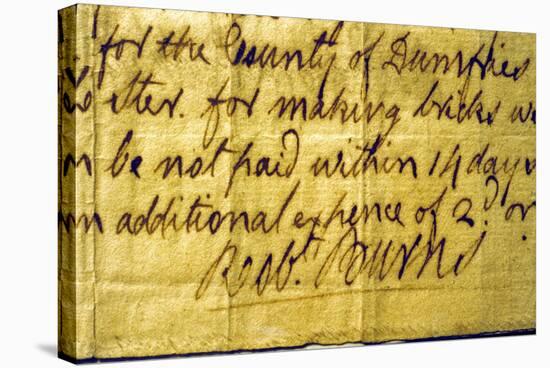 for the County of Dumfries
etter. for making bricks we
be not paid within 14 days
additional expence of 2d. or
Robt. Burns